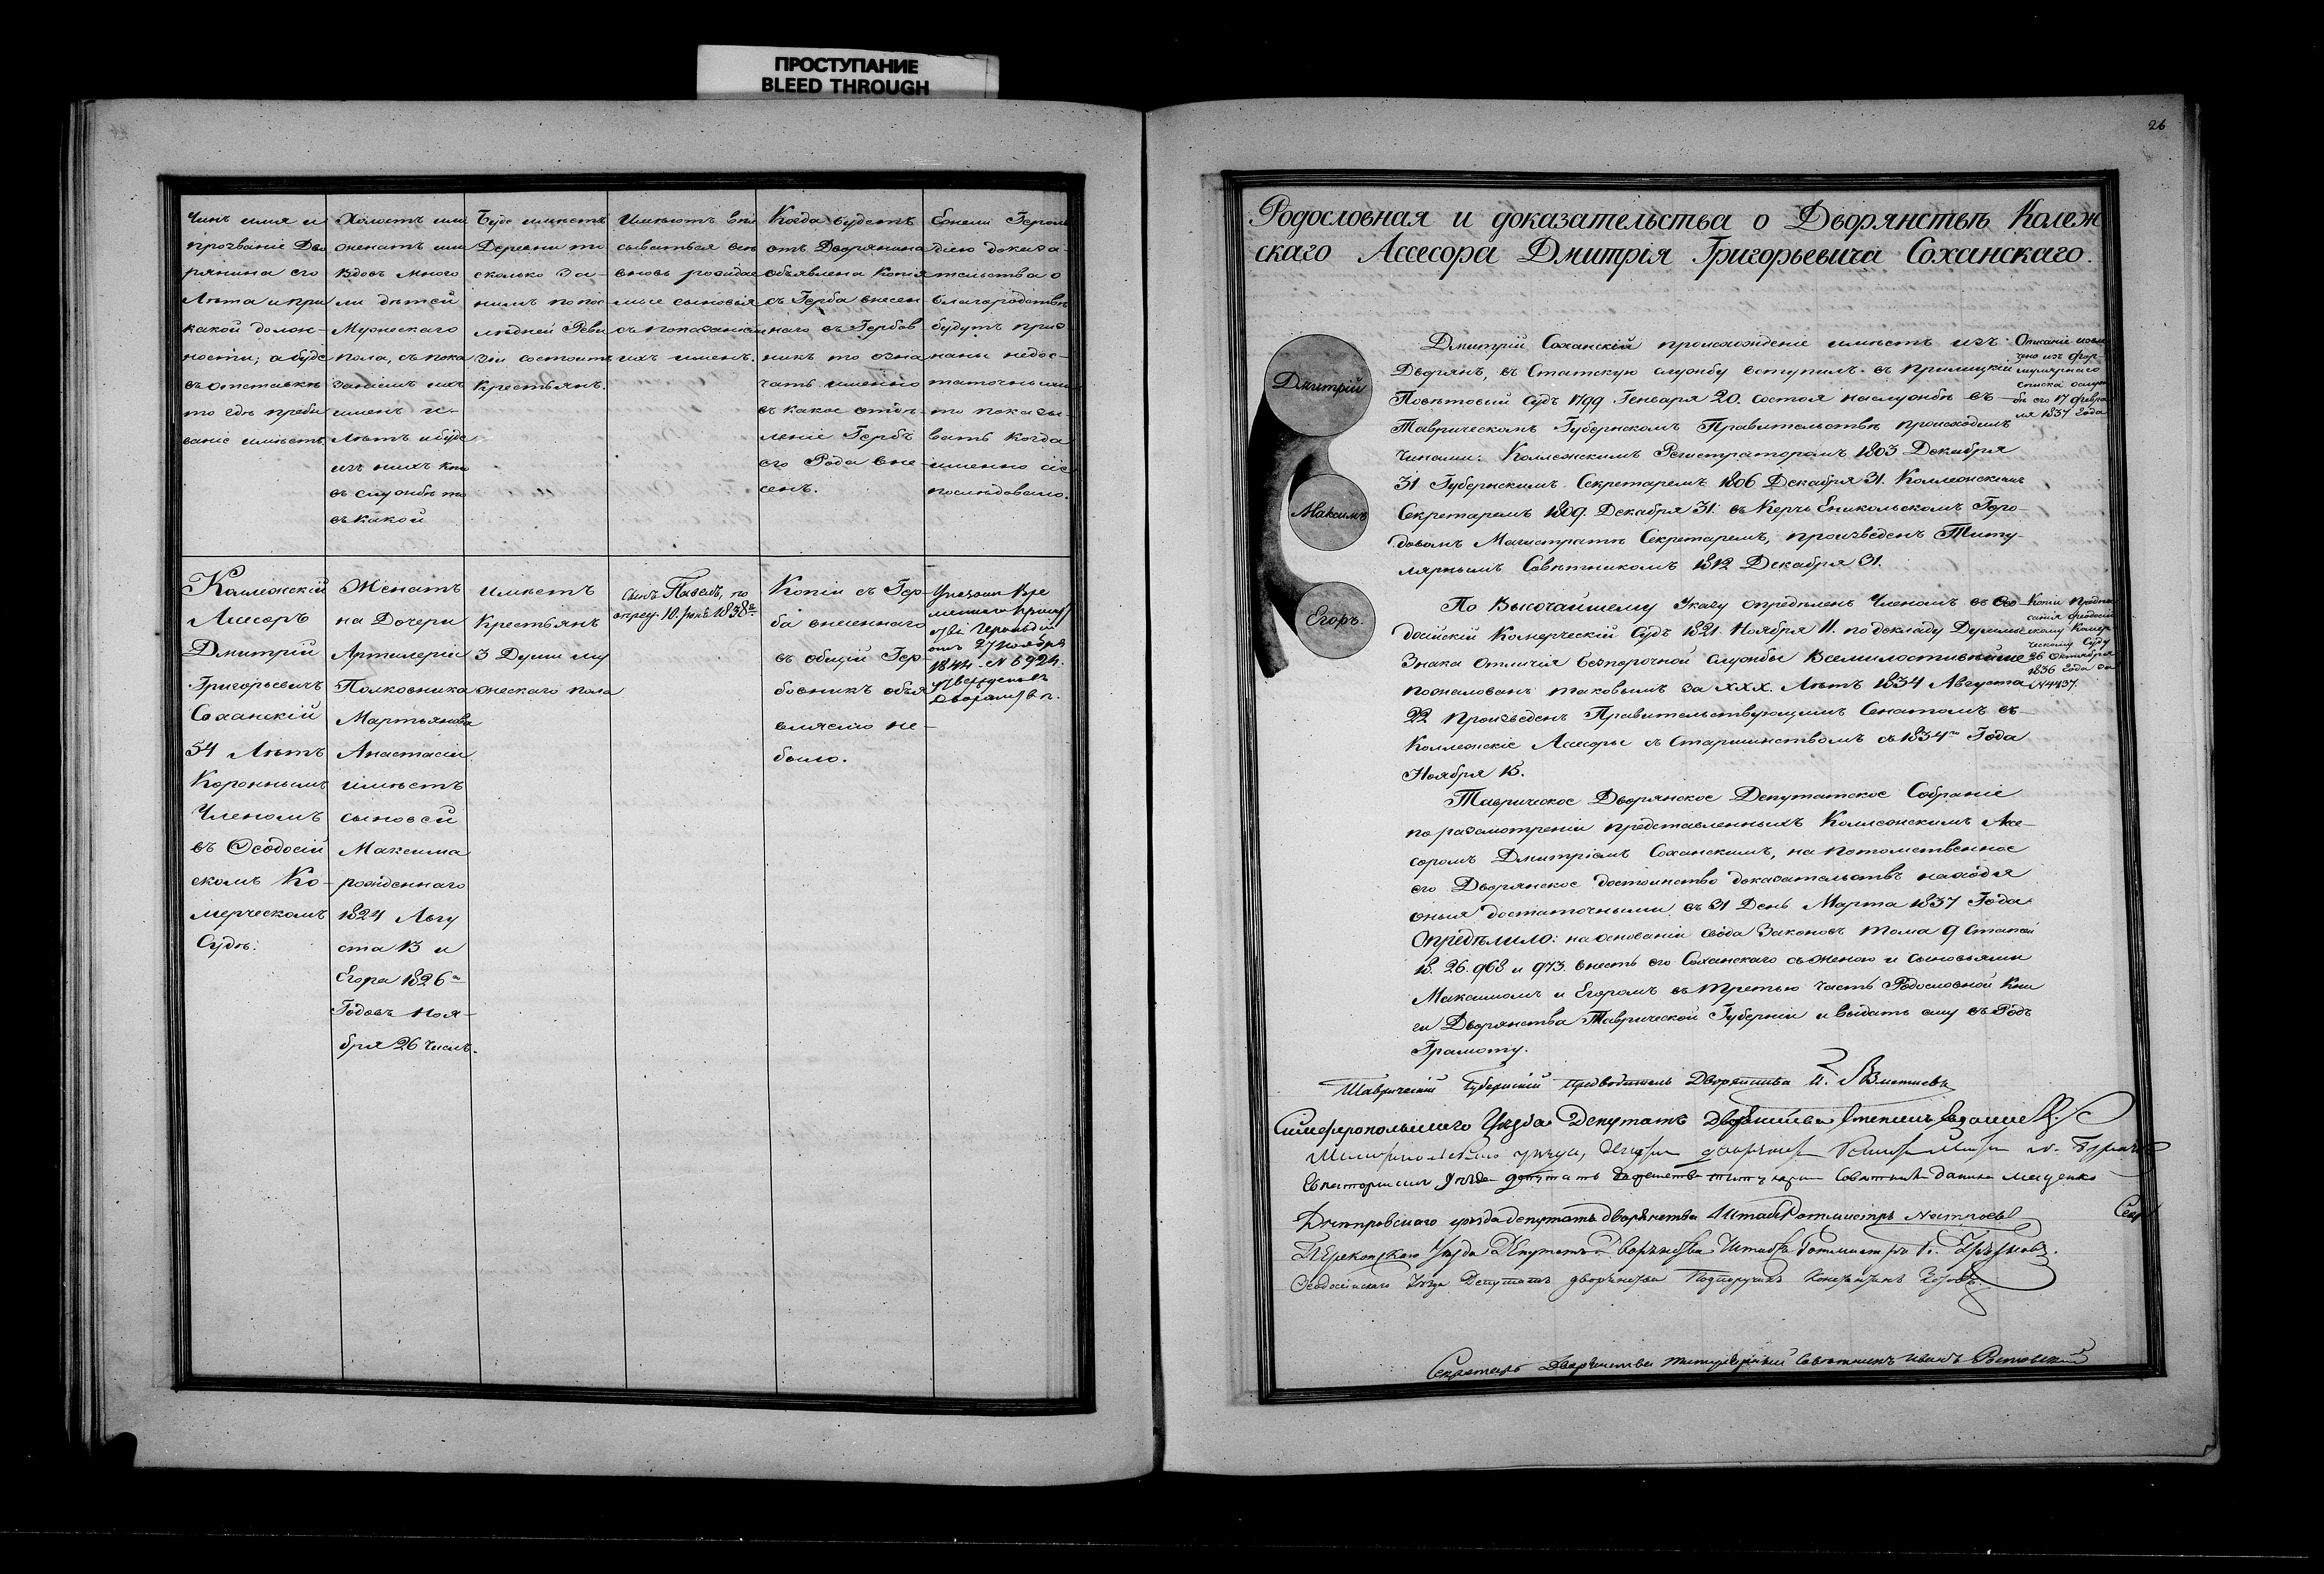 ПРОСТУПАНИЕ
BLEED THROUGH
Чинъ имя и
прозваніе Дво
рянина его
Лѣта и при
какой долж-
ности; а буде
въ отставкѣ
то гдѣ пребы
ваніе имѣетъ
Холостъ или
женатъ или
вдовъ много
ли дѣтей
Мужескаго
пола, съ пока
заніемъ ихъ
именъ и
Лѣтъ и буде
изъ нихъ кто
въ службѣ то
въ какой
Буде имѣетъ
Деревни то
сколько за
нимъ по пос-
лѣдней Реви
зіи состоитъ
Крестьянъ.
Имѣютъ впи
сываться всѣ
вновь рождае
мые сыновья
съ показаніемъ
ихъ именъ.
Когда будетъ
отъ Дворянина
объявлена копія
съ Герба внесен
наго въ Гербов
никъ то озна
чать именно
въ какое отдѣ-
леніе Гербъ
его Рода вне-
сенъ.
Ежели Героль
діею доказа-
тельства о
благородствѣ
будутъ приз-
наны недос-
таточными
то показы-
вать когда
именно сіе
послѣдовало.
Коллежскій
Ассесоръ
Дмитрій
Григорьевичъ
Соханскій
54 Лѣтъ
Короннымъ
Членомъ
въ Ѳеодосій
скомъ Ко-
мерческомъ
Судѣ.
Женатъ
на Дочери
Артилеріи
Полковника
Мартьянова
Анастасіи
имѣетъ
сыновей
Максима
рожденнаго
1824 Авгу
ста 13 и
Егора 1826го
Годовъ Ноя-
бря 26 числъ.
Имѣетъ
Крестьянъ
3 Души му
жескаго пола
Сынъ Павелъ, по
опред. 10. 1838 г.
Копіи съ Гер-
ба внесеннаго
въ общій Гер-
бовникъ объя
вляемо не-
было.
Указомъ Вре
меннаго Присут
ствія Герольдіи
отъ 27 Ноября
1844. N 6924.
утвержденъ въ
Дворянствѣ.
26
Родословная и доказательства о Дворянствѣ Колеж
скаго Ассесора Дмитрія Григорьевича Соханскаго.
Дмитрій
Максимъ
Егоръ.
Дмитрій Соханскій происхожденіе имѣетъ изъ
Дворянъ, въ Статскую службу вступилъ въ Прилуцкій
Повѣтовый Судъ 1799 Генваря 20. состоя на службѣ въ
Таврическомъ Губернскомъ Правительствѣ происходилъ
чинами: Коллежскимъ Регистраторомъ 1803 Декабря
31 Губернскимъ Секретаремъ 1806 Декабря 31. Коллежскимъ
Секретаремъ 1809. Декабря 31. въ Керчь Еникольскомъ Горо-
довомъ Магистратѣ Секретаремъ, произведенъ Титу-
лярнымъ Совѣтникомъ 1812 Декабря 31.
Описаніе извле
чено изъ фор-
мулярнаго
списка о служ
бѣ его 17 Февра
ля 1837 года
По Высочайшему Указу опредѣленъ Членомъ въ Ѳео
досійскій Комерческій Судъ 1821. Ноября 11. по докладу Думы
Знака отличія безпорочной службы Всемилостивѣйше
пожалованъ таковымъ за XXX. Лѣтъ 1834 Августа
22 произведенъ Правительствующимъ Сенатомъ въ
Коллежскіе Ассесоры съ Старшинствомъ съ 1834го Года
Ноября 15.
Копіи предпи
санія Ѳеодосій
скому Комер
ческому Суду
26 Октября
1836 года за
N 4437.
Таврическое Дворянское Депутатское Собраніе
по разсмотреніи представленныхъ Коллежскимъ Ассе-
соромъ Дмитріемъ Соханскимъ, на потомственное
его Дворянское достоинство доказательствъ находя
оныя достаточными въ 31 День Марта 1837 Года
Опредѣлило: на основаніи свода Законовъ тома 9 Статей
18. 26. 968 и 973. внесть его Соханскаго съ женою и сыновьями
Максимомъ и Егоромъ въ третью часть Родословной Кни
ги Дворянства Таврической Губерніи и выдать ему въ Родъ
Грамоту.
Таврическій Губернскій предводитель Дворянства
Симферопольскаго Уѣзда Депутатъ Дворянства
уѣзда,
уѣзда депутатъ Совѣтникъ
Днѣпровскаго уѣзда депутатъ дворянства Штабъ Ротмистръ
Перекопскаго Уѣзда Депутатъ Дворянства Штабсъ Ротмистръ
Ѳеодосійскаго Уѣзда Депутатъ дворянства Подпоручикъ
Секретарь Дворянства титулярный Совѣтникъ Иванъ